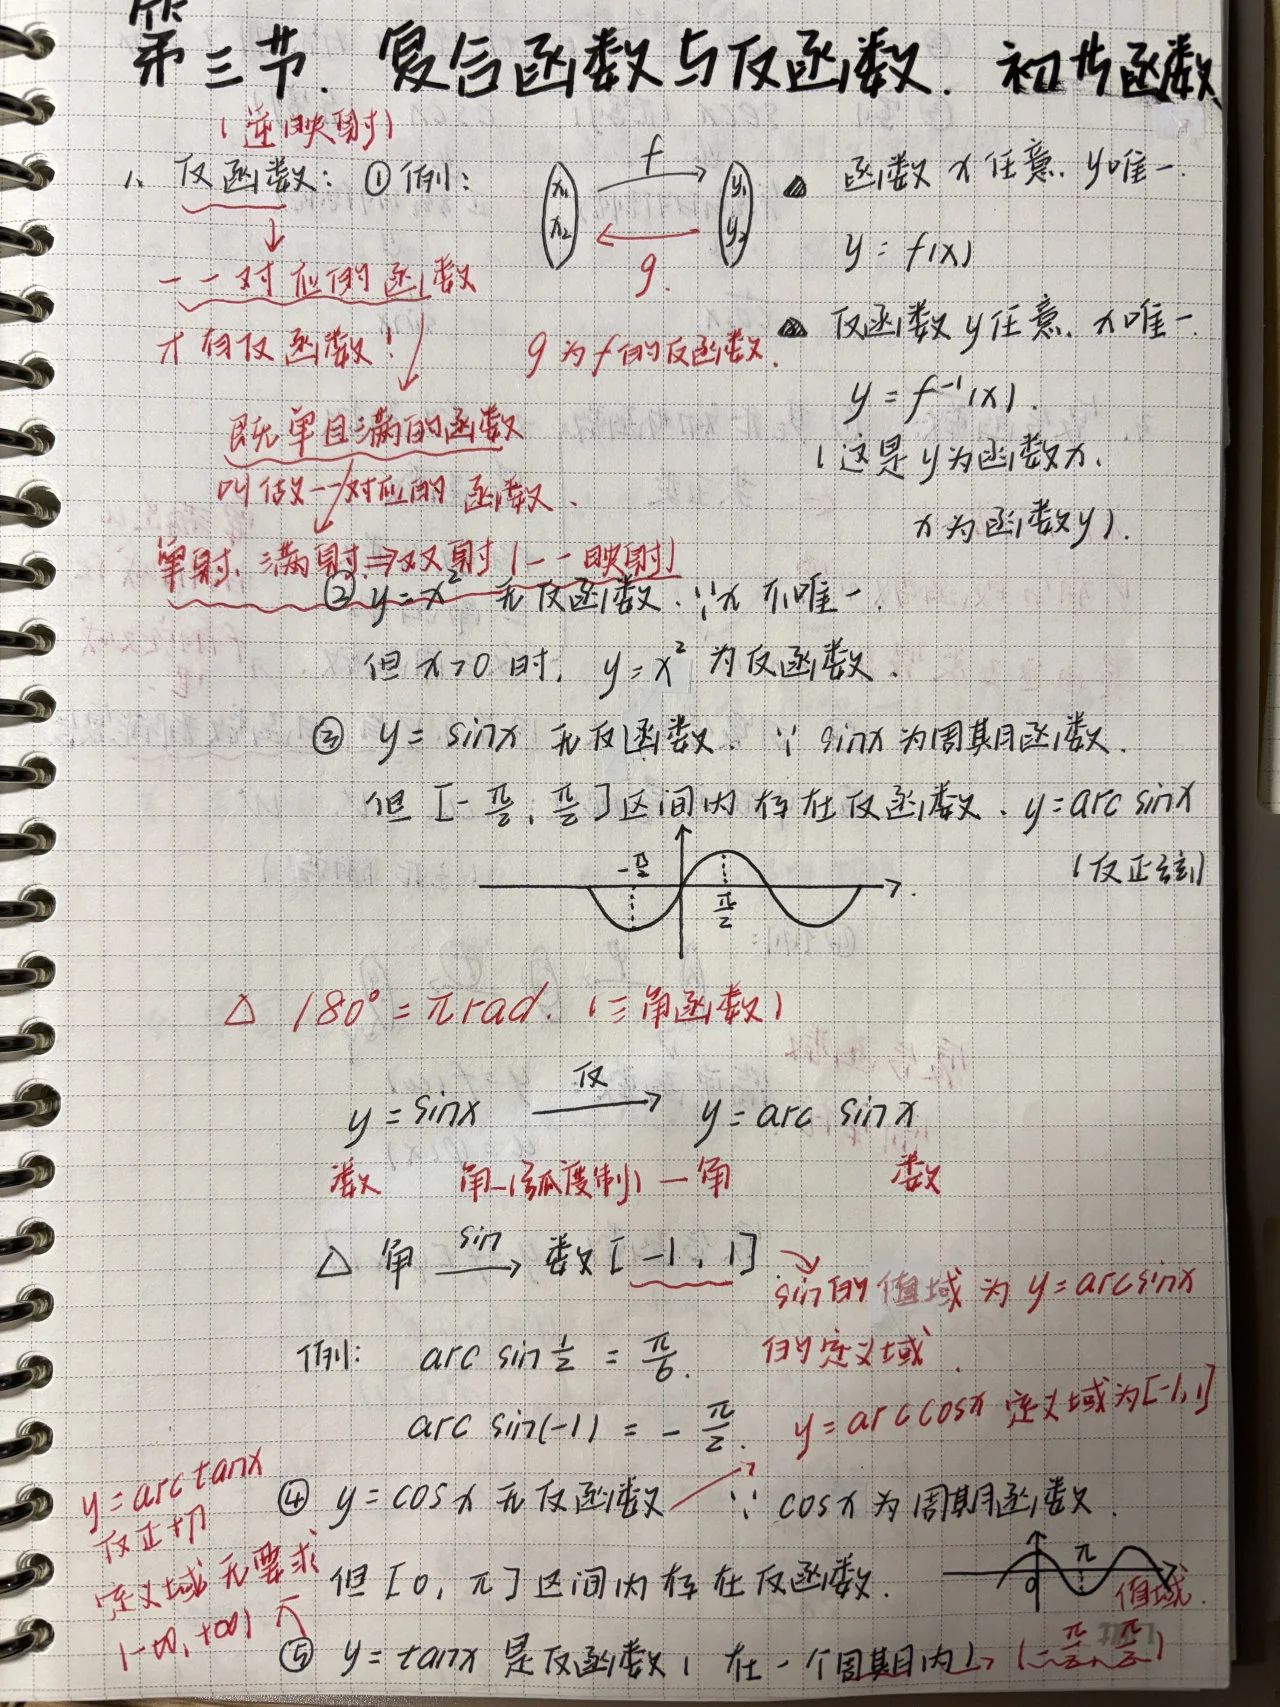 第三节. 复合函数与反函数. 初步函数
(逆映射)
1、反函数: ①例: x₁ x₂ f y₁ y₂ g.
一一对应的函数
才有反函数!
g为f的反函数.
既单且满的函数
叫做一一对应的函数.
单射、满射⇒双射(一一映射)
▲ 函数 x任意. y唯一.
y = f(x)
▲ 反函数 y任意. x唯一.
y = f⁻¹(x).
(这是y为函数x.
x为函数y).
② y = x² 无反函数. ∵x不唯一.
但 x>0 时, y = x² 为反函数.
③ y = sinx 无反函数. ∵ sinx为周期函数.
但 [-π/2, π/2] 区间内存在反函数. y = arc sinx
(反正弦)
-π/2 π/2
△ 180° = π rad. (三角函数)
y = sinx 反→ y = arc sinx
数 角-(弧度制)-角 数
△ 角 sin→ 数 [-1, 1]
sin的值域为 y = arcsinx
的定义域.
例: arc sin 1/2 = π/6.
arc sin(-1) = -π/2.
y = arccosx 定义域为[-1,1]
④ y = cosx 无反函数 ∵ cosx为周期函数.
但 [0, π] 区间内存在反函数.
0 π
值域.
y = arctanx
反正切
定义域无要求
(-∞, +∞)
⑤ y = tanx 是反函数(在一个周期内)→(-π/2, π/2)